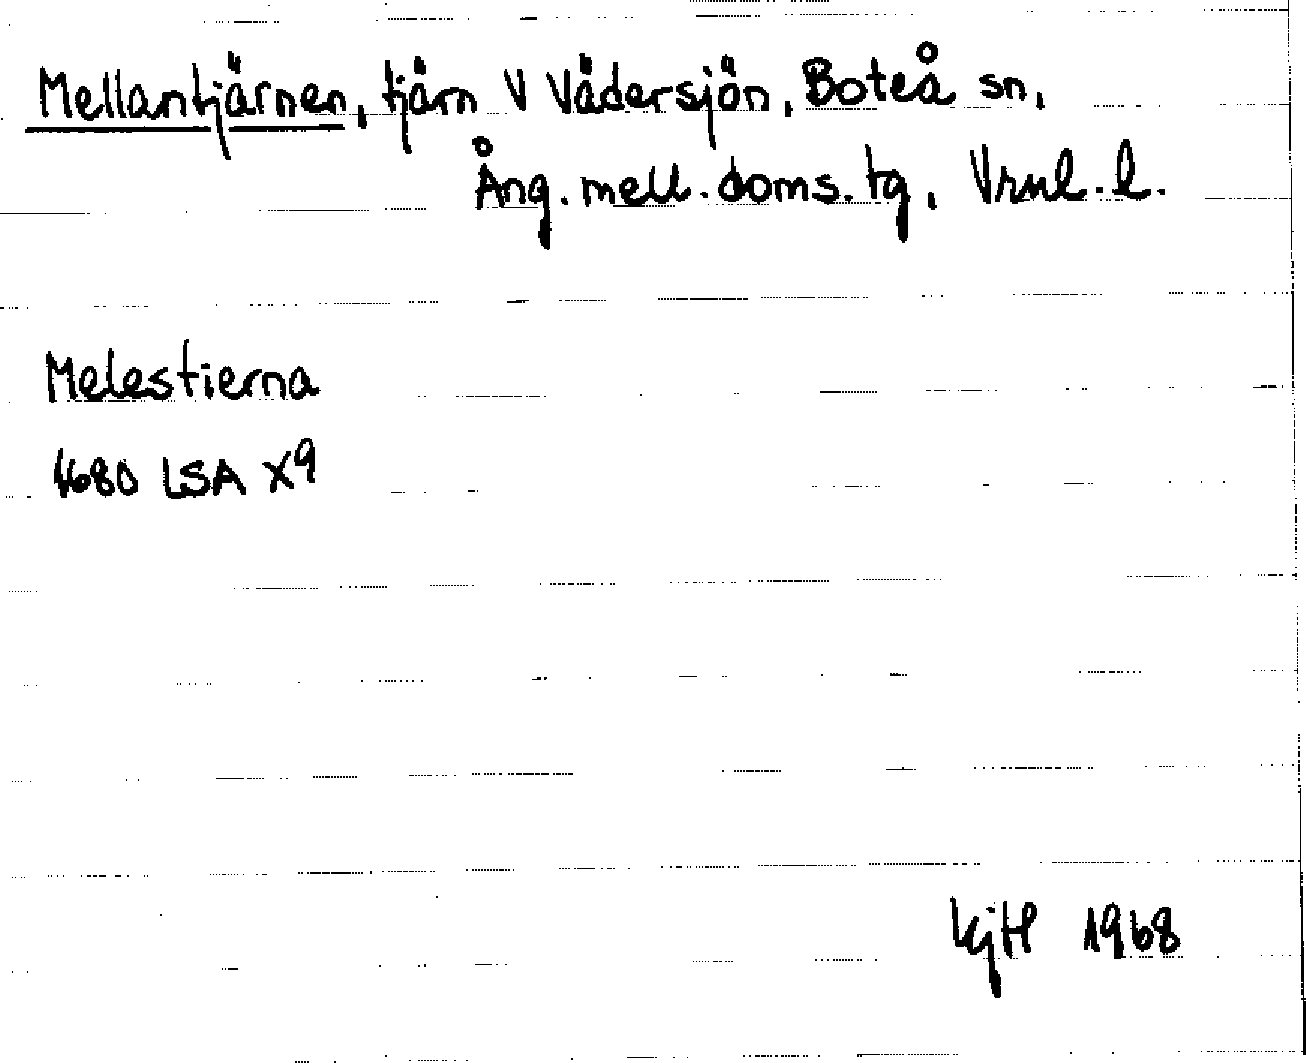 Mellantjärnen, tjärn V Vädersjön, Boteå sn,
Ång. mell. doms. tg, Vrnl. l.
Melestierna
1680 LSA X9
KjH 1968